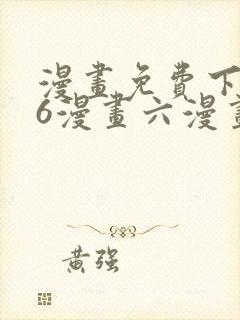 漫畫免費下
6漫畫六漫畫
黃强